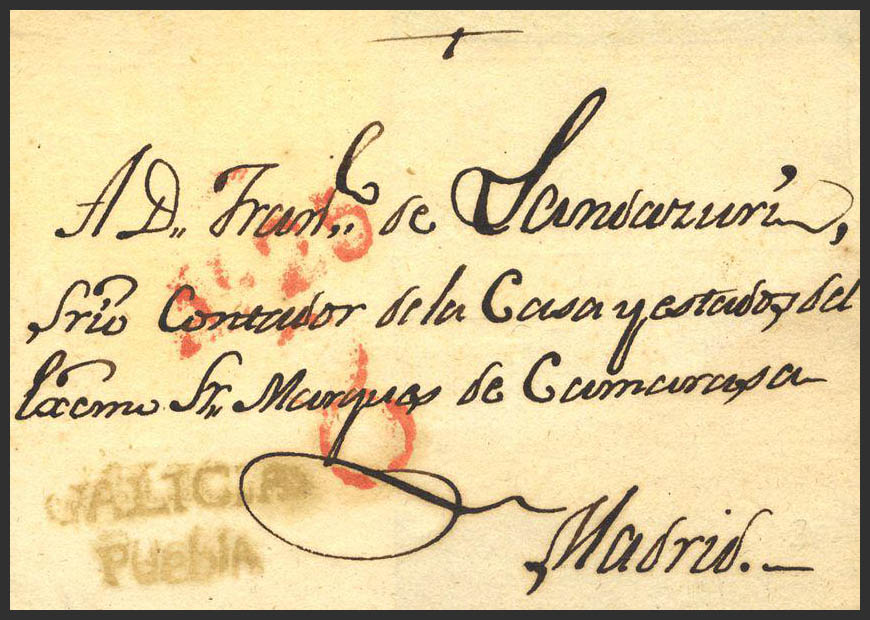 A D.. Fran.co de Landazuri,
Srio Contador de la Casa y estados del
Excmo Sr.. Marques de Camarasa
Madrid.
GALICIA
PUEBLA